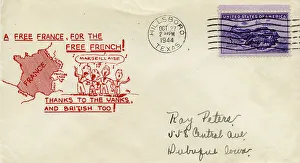 A FREE FRANCE, FOR THE
FREE FRENCH!
MARSEILLAISE
FRANCE
THANKS TO THE YANKS,
AND BRITISH TOO!
HILLSBORO
OCT 27
2 PM
1944
TEXAS
UNITED STATES OF AMERICA
Ray Peters
558 Central Ave
Dubuque Iowa.